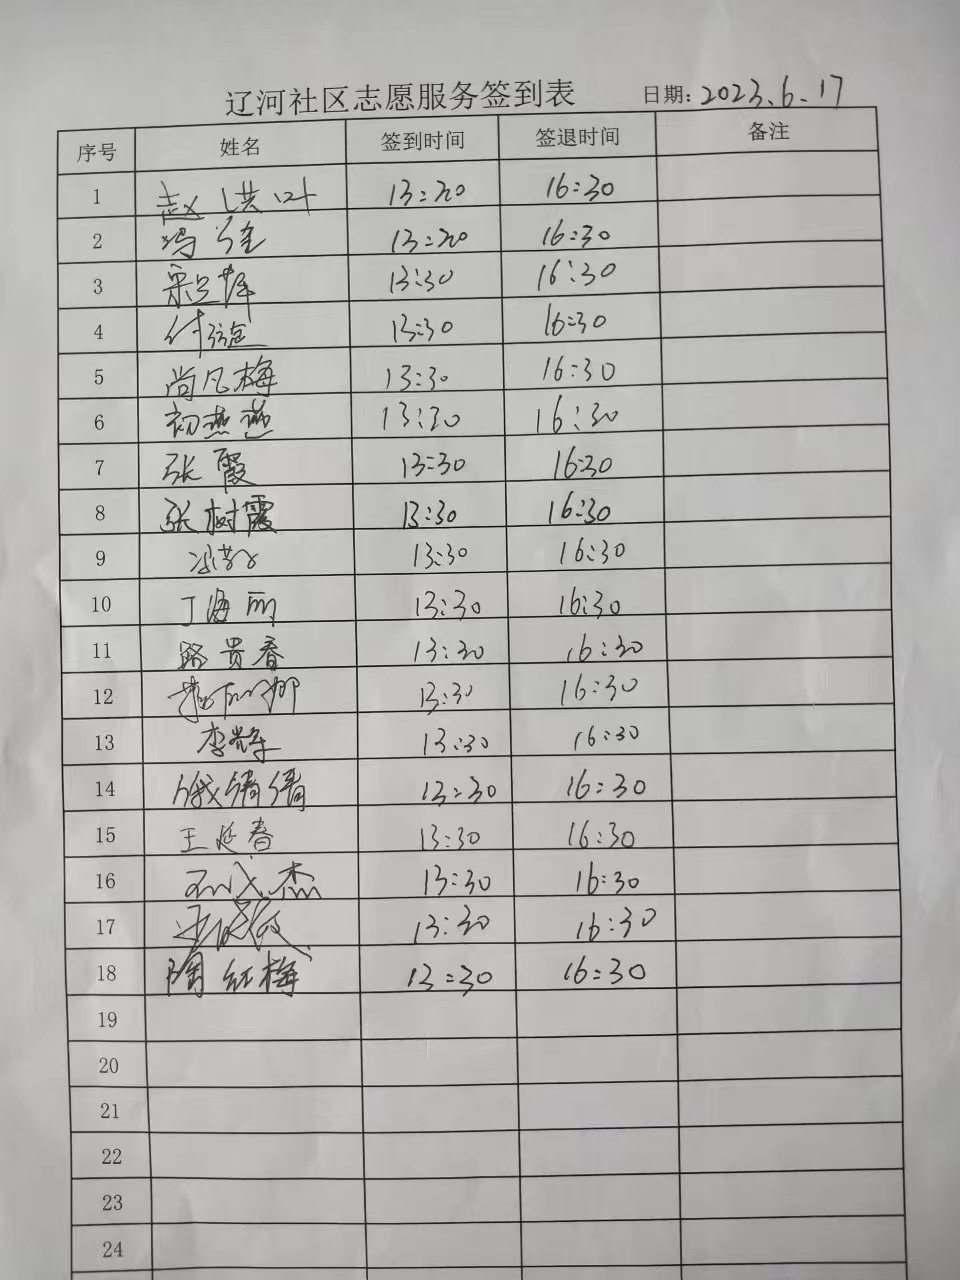 辽河社区志愿服务签到表 日期: 2023.6.17
序号 姓名 签到时间 签退时间 备注
1 赵洪叶 13:20 16:30
2 冯 13:20 16:30
3 13:30 16:30
4 付 13:30 16:30
5 尚凡梅 13:30 16:30
6 初燕燕 13:30 16:30
7 张霞 13:30 16:30
8 张树霞 13:30 16:30
9 13:30 16:30
10 丁海丽 13:30 16:30
11 路贵春 13:30 16:30
12 13:30 16:30
13 李辉 13:30 16:30
14 倩倩 13:30 16:30
15 王延春 13:30 16:30
16 杰 13:30 16:30
17 13:30 16:30
18 陶红梅 13:30 16:30
19
20
21
22
23
24